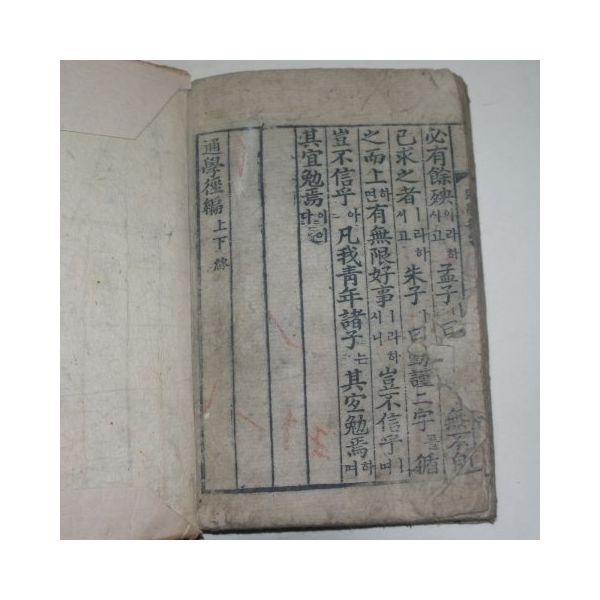 必有餘殃이라하시고孟子ㅣ曰無不自
己求之者ㅣ라하시고朱子ㅣ曰勤謹二字를循
之而上하면有無限好事ㅣ라하시니豈不信乎며
豈不信乎아凡我靑年諸子는其宜勉焉하며
其宜勉焉이어다
通學徑編上下終